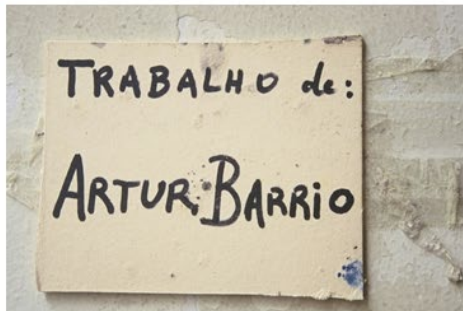 TRABALHO de:
ARTUR BARRIO